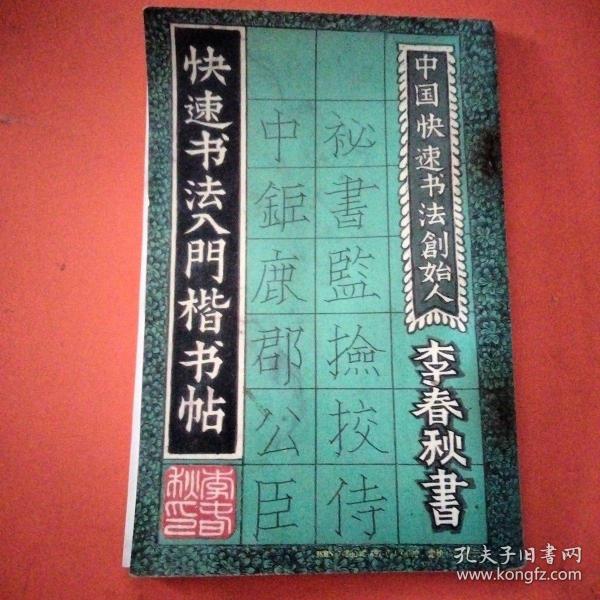 中国快速书法創始人
李春秋書
祕書監撿挍侍
中鉅鹿郡公臣
快速书法入門楷书帖
李春秋印
孔夫子旧书网
www.kongfz.com